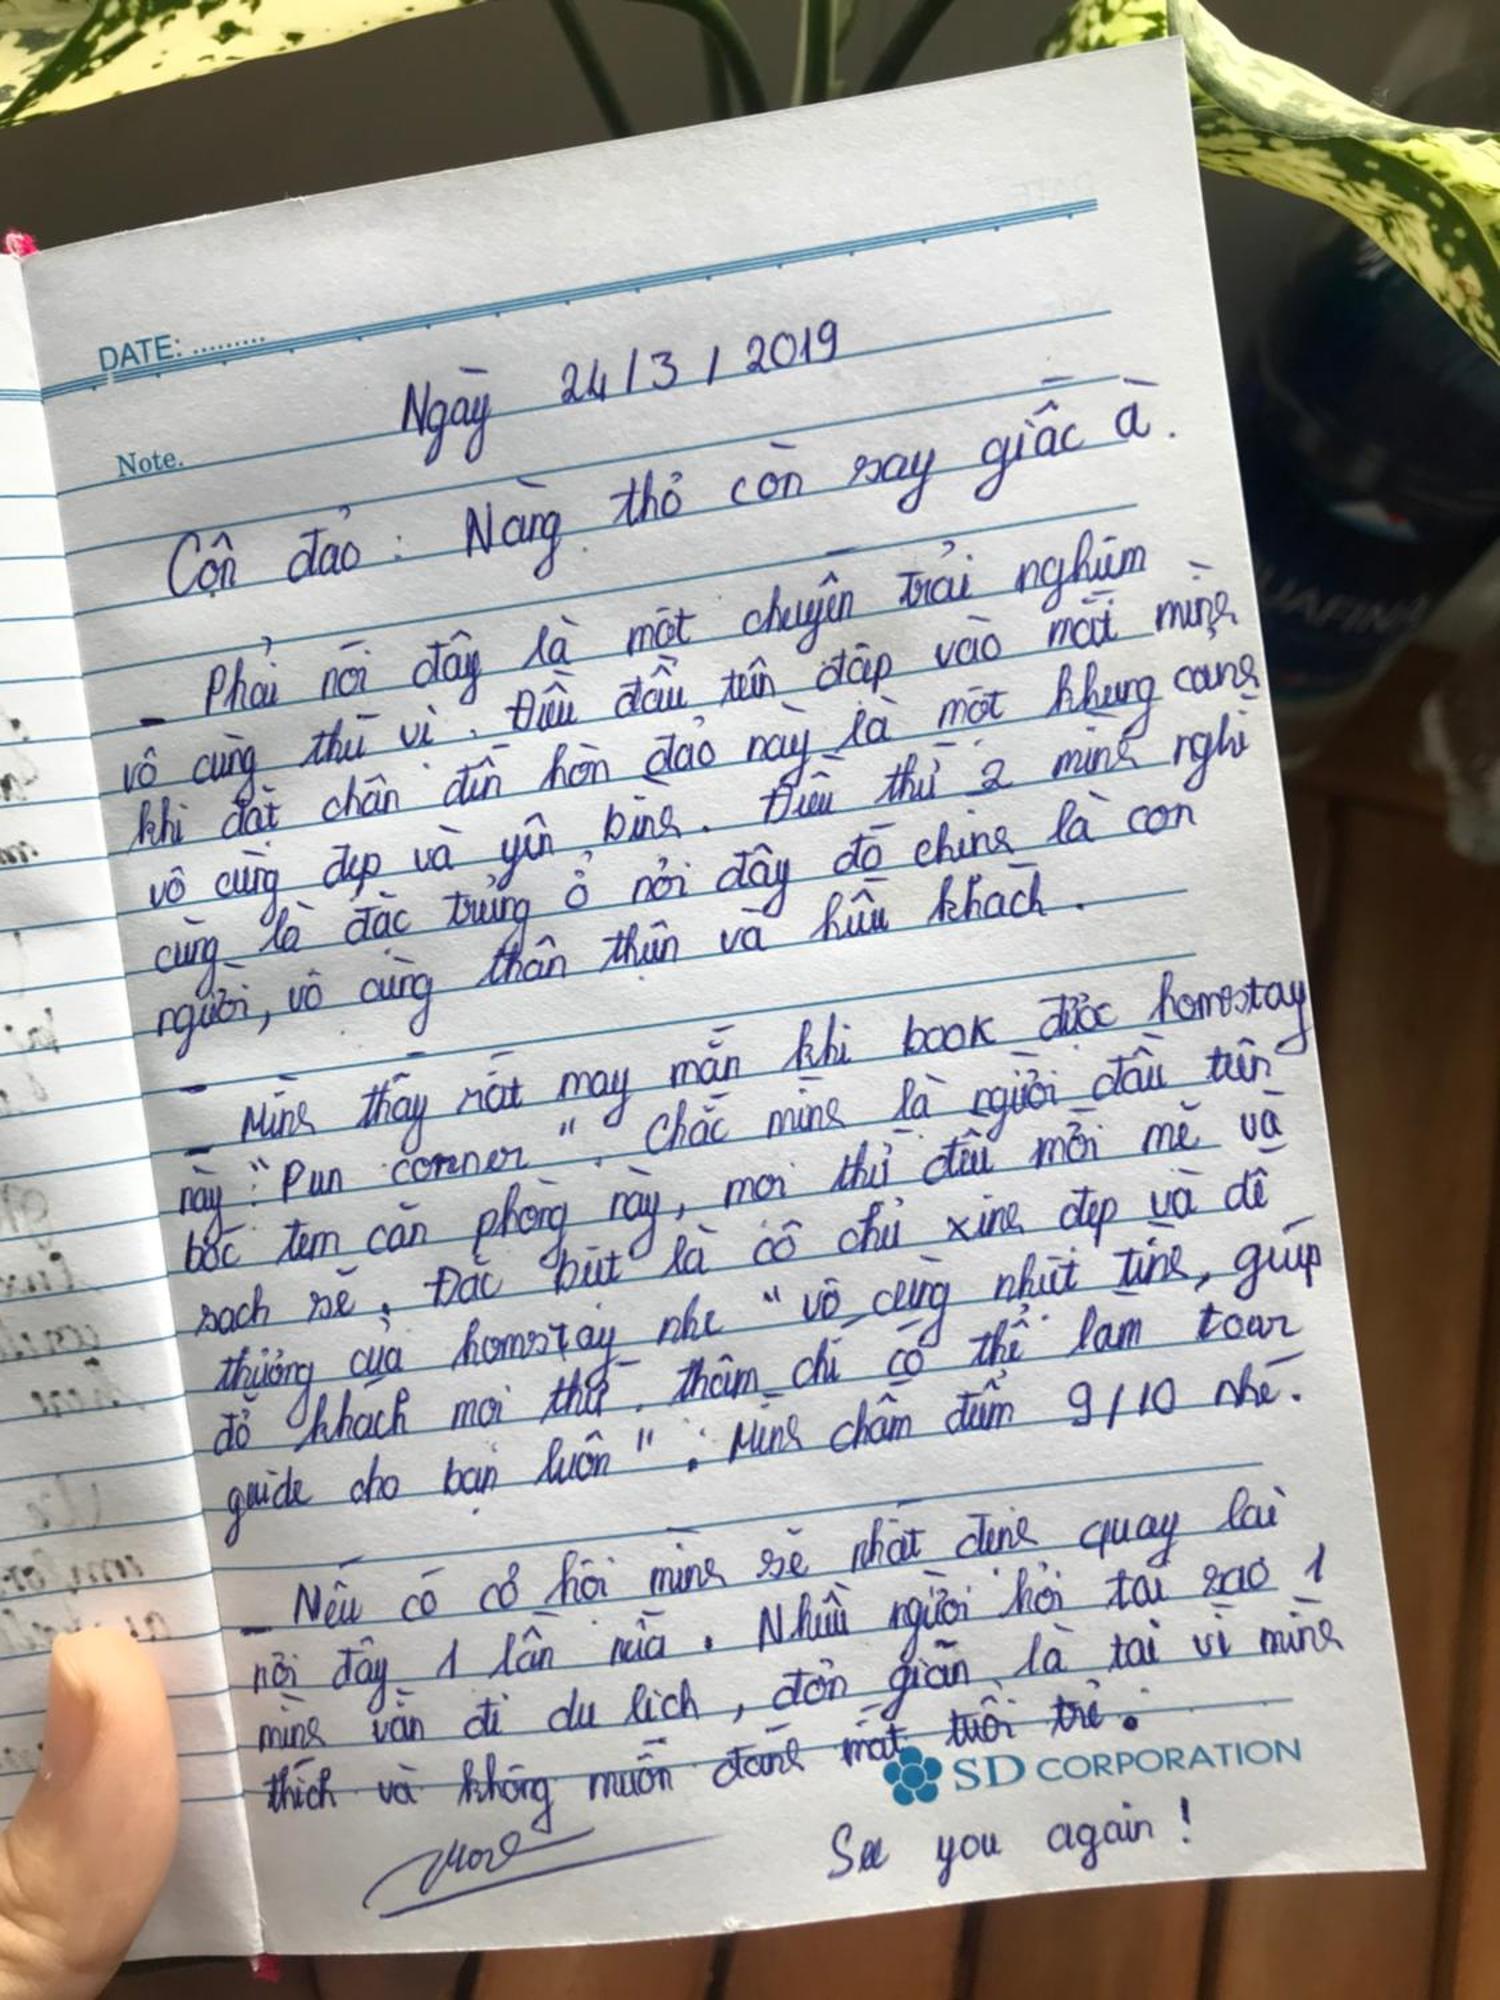 DATE: .........
Note.
Ngày 24/3/2019
Côn đảo: Nàng thơ còn say giấc à.
- Phải nói đây là một chuyến trải nghiệm
vô cùng thú vị. Điều đầu tiên đập vào mắt mình
khi đặt chân đến hòn đảo này là một khung cảnh
vô cùng đẹp và yên bình. Điều thứ 2 mình nghĩ
cũng là đặc trưng ở nơi đây đó chính là con
người, vô cùng thân thiện và hiếu khách.
- Mình thấy rất may mắn khi book được homestay
này: "Pun corner". Chắc mình là người đầu tiên
bóc tem căn phòng này, mọi thứ đều mới mẻ và
sạch sẽ. Đặc biệt là cô chủ xinh đẹp và dễ
thương của homestay nhe "vô cùng nhiệt tình, giúp
đỡ khách mọi thứ, thậm chí có thể làm tour
guide cho bạn luôn". Mình chấm điểm 9/10 nhé.
- Nếu có cơ hội mình sẽ nhất định quay lại
nơi đây 1 lần nữa. Nhiều người hỏi tại sao 1
mình vẫn đi du lịch, đơn giản là tại vì mình
thích và không muốn đánh mất tuổi trẻ.
SD CORPORATION
See you again!